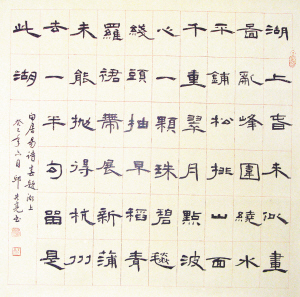 湖上春来似畫
圖亂峰圍繞水
平鋪松排山面
千重翠月點波
心一顆珠碧毯
綫頭抽早稻青
羅裙帶展新蒲
未能拋得杭州
去一半勾留是
此湖
白居易詩春題湖上
癸巳年六月書